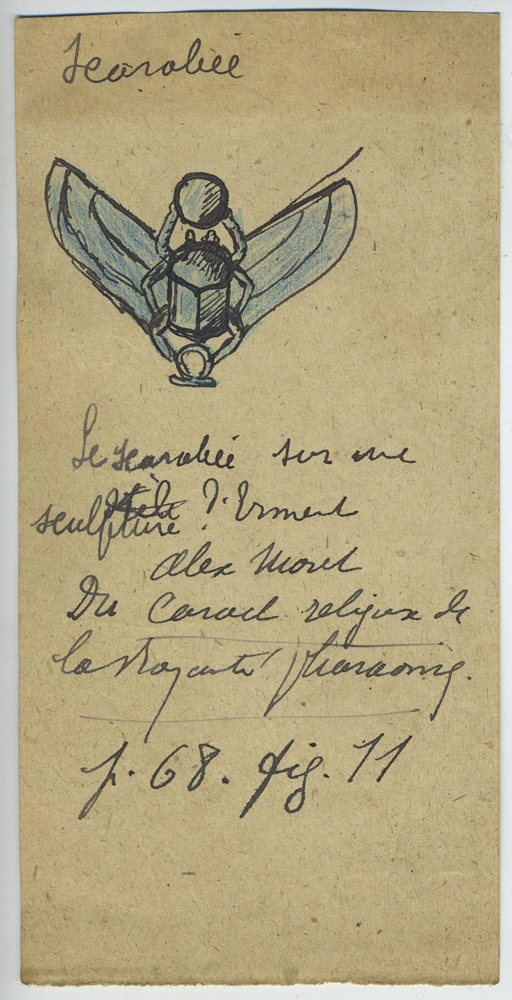 Scarabée
Le scarabée sur une
sculpture d'Erment
Alex Moret
Du Caract religux de
la Royauté pharaoniq.
p. 68. fig. 11